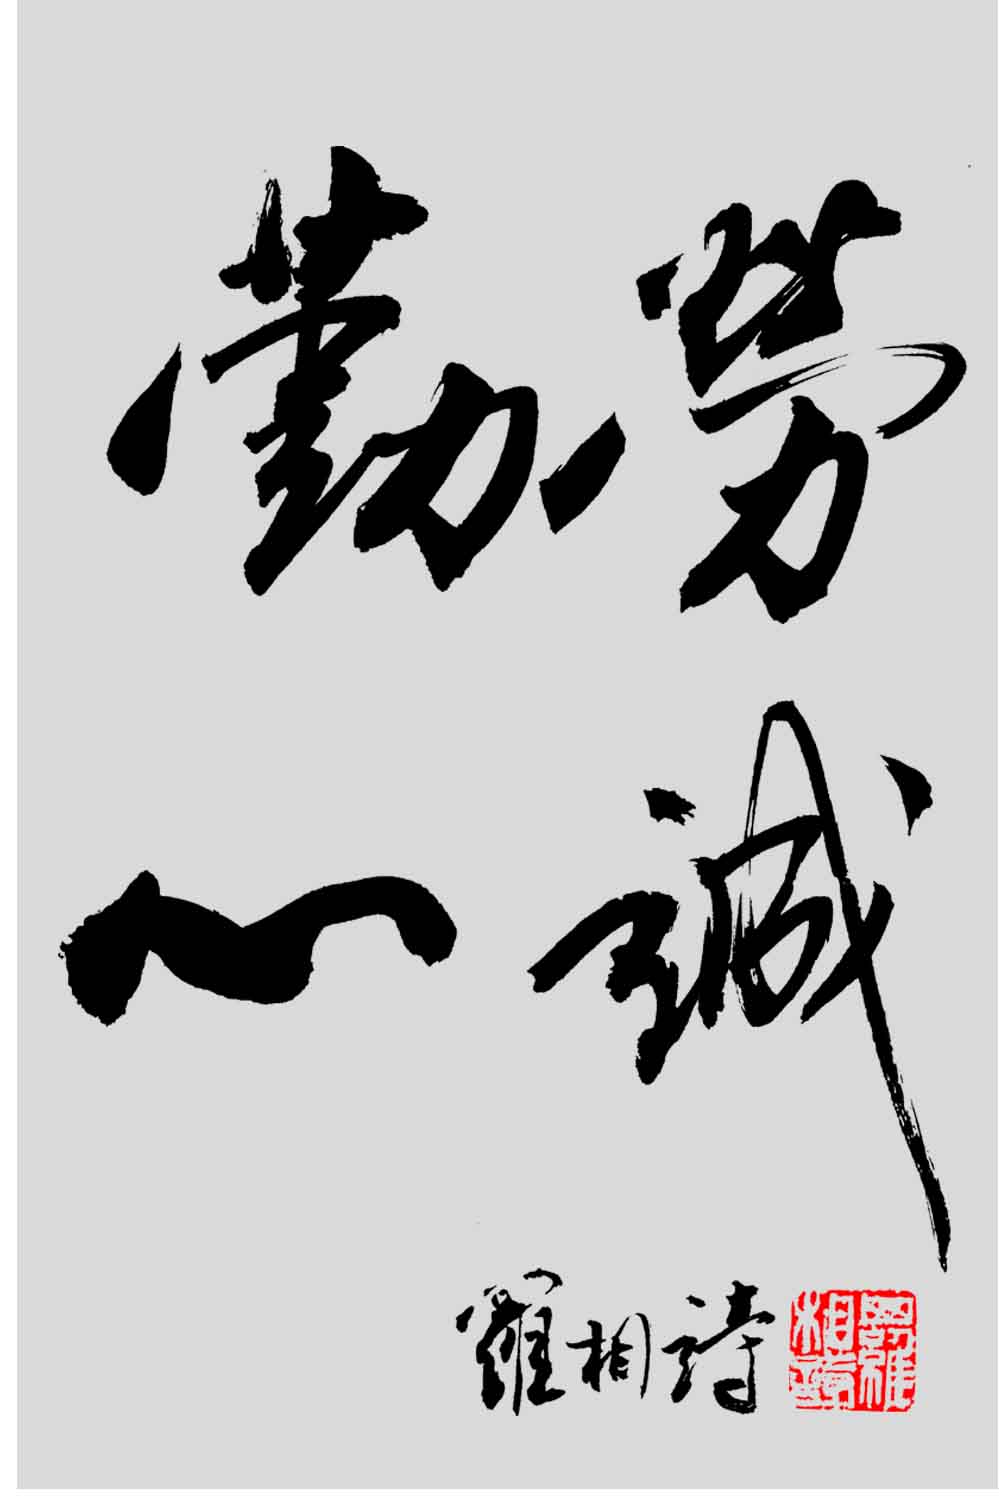 勤勞
心誠
羅相詩
羅相詩